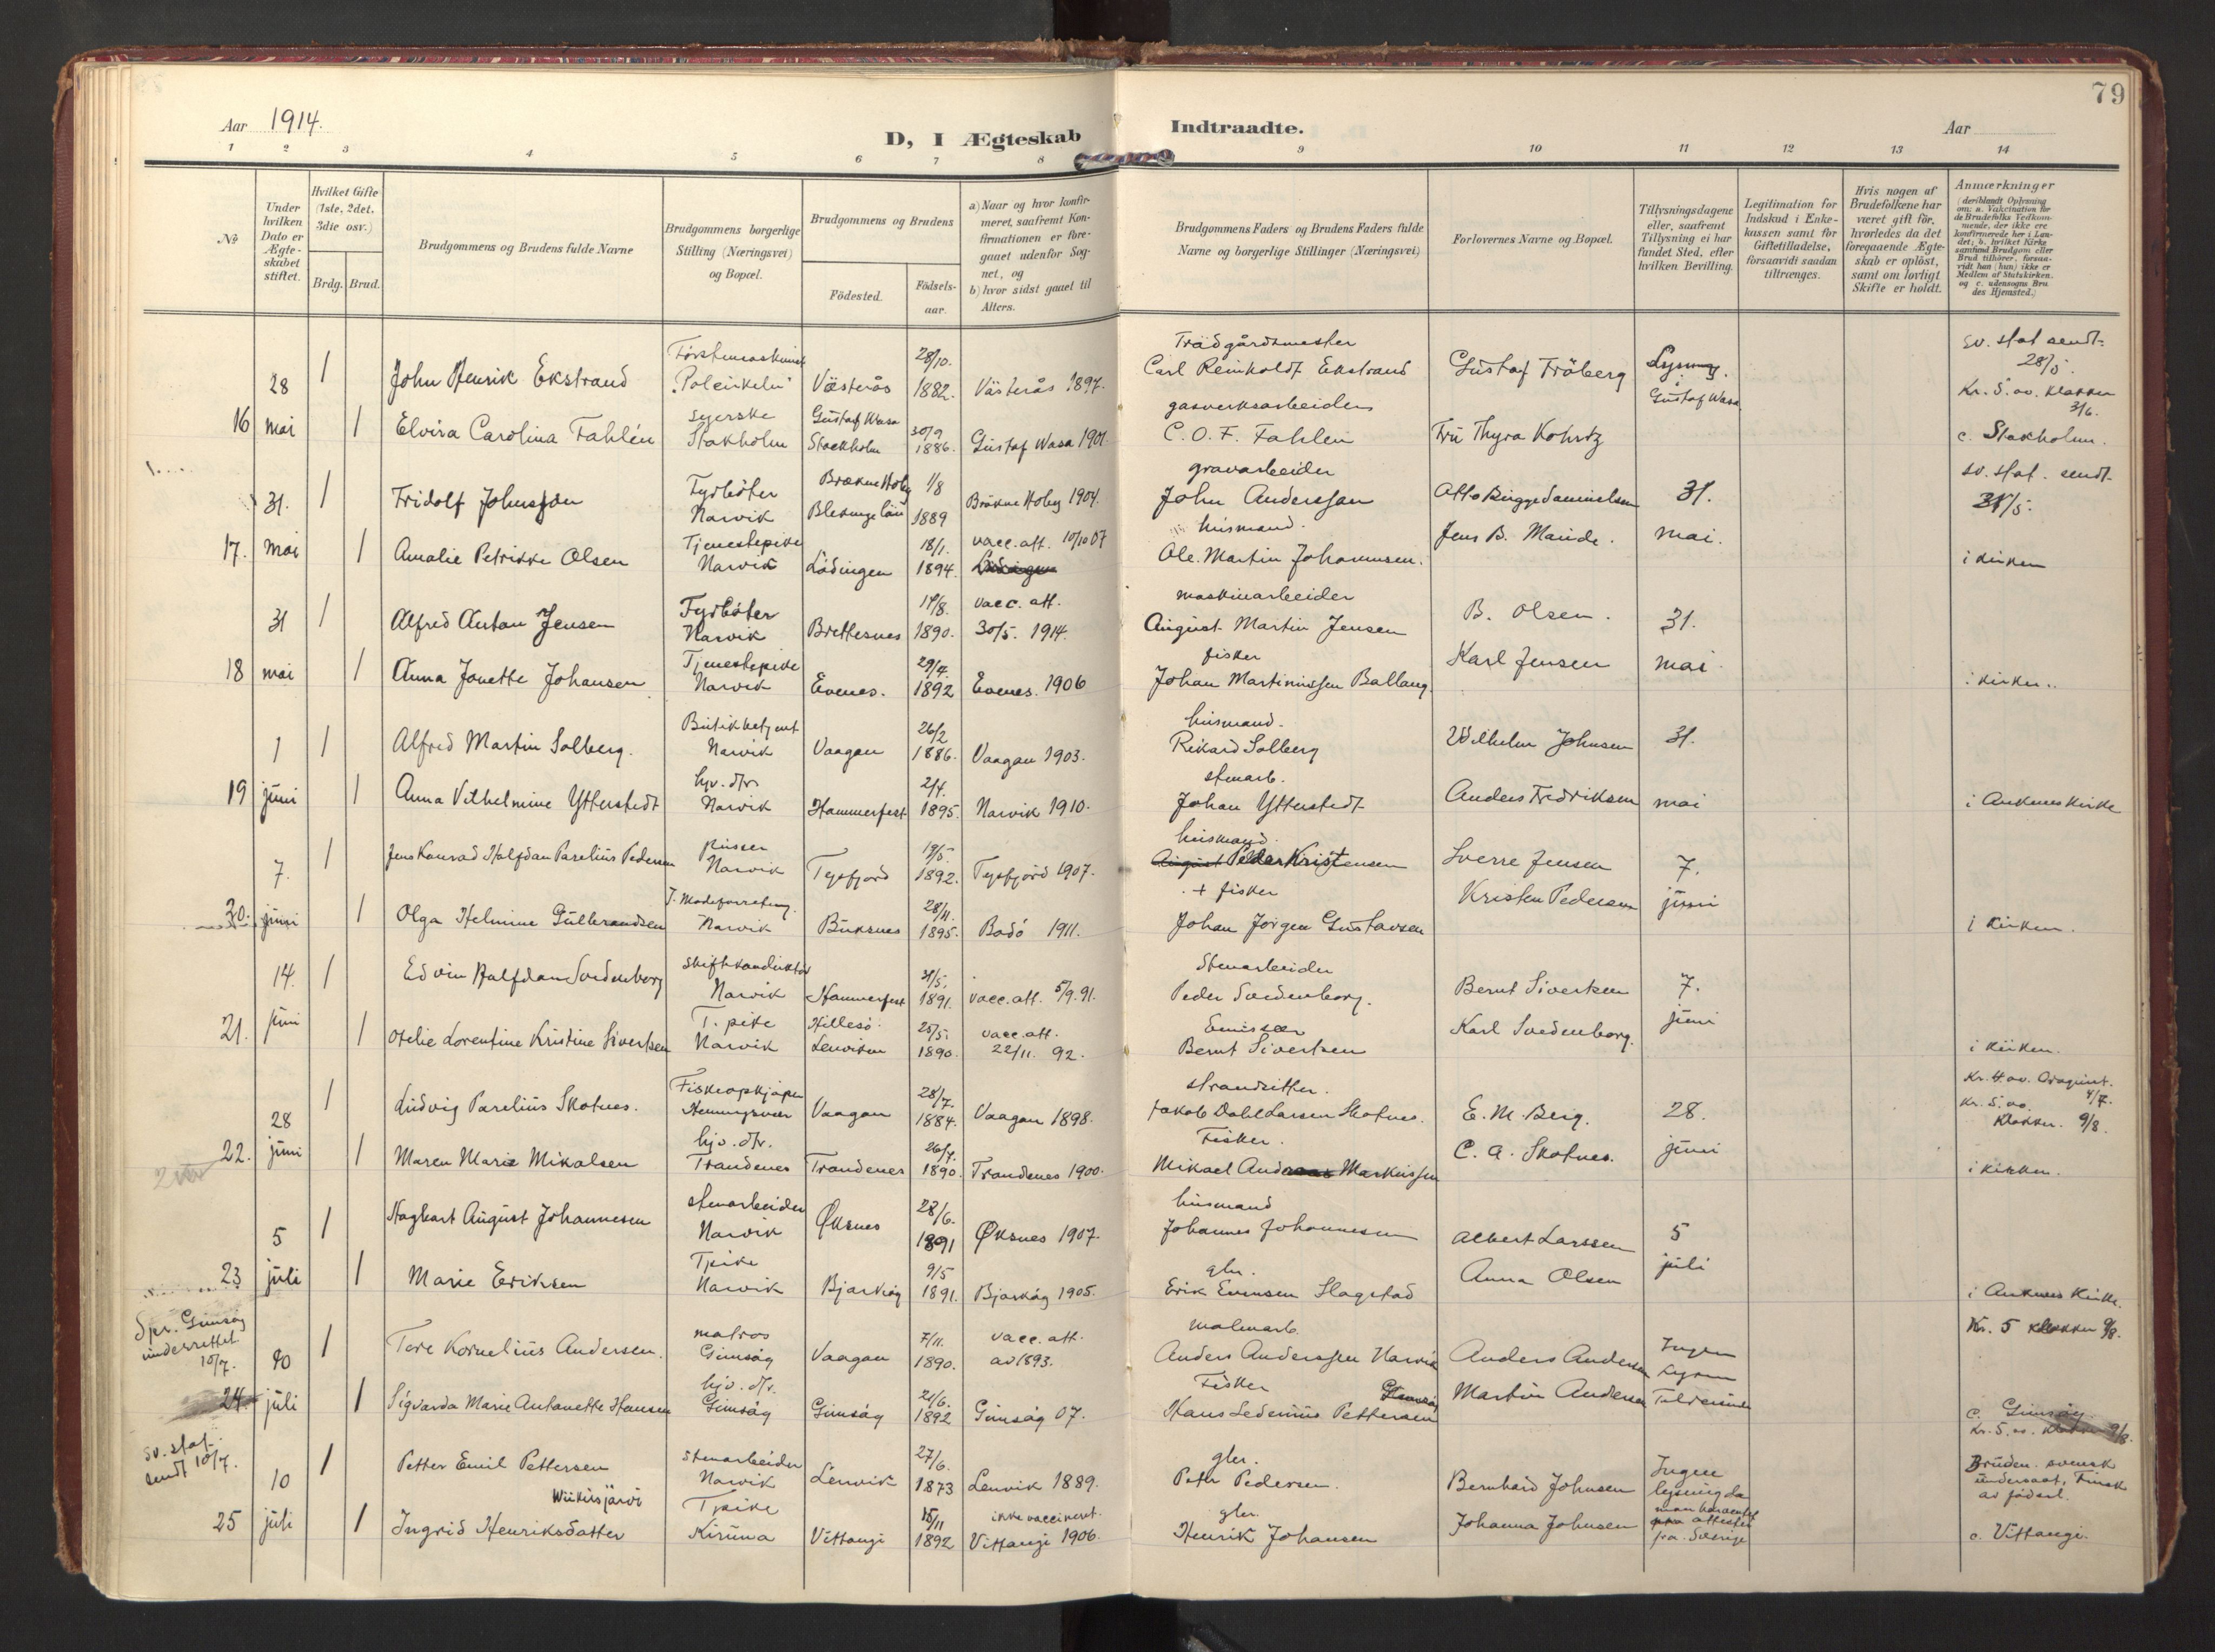 79
Aar 1914.
D, I Ægteskab Indtraadte.
Aar
1 2 3 4 5 6 7 8 9 10 11 12 13 14
№
Under hvilken Dato er Ægteskabet stiftet.
Hvilket Gifte (1ste, 2det, 3die osv.)
Brdg. Brud.
Brudgommens og Brudens fulde Navne
Brudgommens borgerlige Stilling (Næringsvei) og Bopæl.
Brudgommens og Brudens
Födested.
Födsels-aar.
a) Naar og hvor konfir-
meret, saafremt Kon-
firmationen er fore-
gaaet udenfor Sog-
net, og
b) hvor sidst gaaet til
Alters.
Brudgommens Faders og Brudens Faders fulde
Navne og borgerlige Stillinger (Næringsvei)
Forlovernes Navne og Bopæl.
Tillysningsdagene
eller, saafremt
Tillysning ei har
fundet Sted, efter
hvilken Bevilling.
Legitimation for
Indskud i Enke-
kassen samt for
Giftetilladelse,
forsaavidt saadan
tiltrænges.
Hvis nogen af
Brudefolkene har
været gift för,
hvorledes da det
foregaaende Ægte-
skab er oplöst,
samt om lovligt
Skifte er holdt.
Anmærkninger
(deriblandt Oplysning
om: a. Vakcination for
de Brudefolks Vedkom-
mende, der ikke ere
konfirmerede her i Lan-
det; b. hvilket Kirke
samfund Brudgom eller
Brud tilhörer, forsaa-
vidt han (hun) ikke er
Medlem af Statskirken.
og c. udensogns Bru
des Hjemsted.)
16 28 mai
1 John Henrik Ekstrand "Polcirkeln" Västerås 28/10. 1882. Västerås 1897.
Trädgårdsmester
Carl Reinholdt Ekstrand Gustaf Fröberg Lysning. Gustaf Wasa
sv. stat sendt
28/5
Kr. 5. av. klokker
3/6.
1 Elvira Carolina Fahlén syerske Stokholm Gustaf Wasa Stockholm 30/9 1886. Gustaf Wasa 1901.
gasverksarbeider
C. O. F. Fahlén Fru Thyra Kohrtz
c. Stockholm.
17. 31. mai
1 Fridolf Johnsson Fyrböter Narvik Bräkne Hoby Blekinge län 1/8 1889 Bräkne Hoby 1904.
gravarbeider
John Andersson 31. mai.
sv. stat. sendt
31/5.
1 Amalie Petrikke Olsen Tjenestepike Narvik Lödingen 18/1. 1894. vacc. att. 10/10 07
husmand.
Ole Martin Johannesen. Jens B.
i kirken
18 31 mai
1 Alfred Anton Jensen Fyrböter Narvik Brettesnes 1890. vacc. att. 30/5. 1914.
maskinarbeider
August Martin Jensen B. Olsen. 31. mai
1 Anna Jonette Johansen Tjenestepike Narvik Evenes. 29/4. 1892 Evenes. 1906
fisker
Johan Martinussen Ballang. Karl Jensen
i kirken.
19 1 juni
1 Alfred Martin Solberg. Butikbetjent Narvik Vaagan 26/2 1886. Vaagan 1903.
husmand.
Rikard Solberg Wilhelm Johnsen 31. mai
1 Anna Vilhelmine Ytterstedt hjv. dtr. Narvik Hammerfest 2/4. 1895. Narvik 1910.
stenarb.
Johan Ytterstedt Anders Fredriksen
i Ankenes Kirke
20. 7. juni
1 Jens Konrad Halfdan Parelius Pedersen pusser Narvik Tysfjord 19/5. 1892. Tysfjord 1907.
husmand.
Peder Kristensen Sverre Jensen 7. juni
1 Olga Helmine Gulbrandsen Narvik Buksnes 28/11. 1895. Bodö 1911.
+ fisker
Johan Jörgen Gustavsen Kristen Pedersen
i kirken.
21. 14. juni
1 Edvin Halfdan Svedenborg skiftkonduktör Narvik Hammerfest 31/5. 1891. vacc. att. 5/9. 91.
Stenarbeider
Peder Svedenborg. Bernt Sivertsen 7. juni
1 Otelie Lorentine Kristine Sivertsen T. pike Narvik Hillesö Lenviken 25/5. 1890. vacc. att. 22/11. 92.
Emissær
Bernt Sivertsen Karl Svedenborg.
i kirken.
22. 28 juni
1 Ludvig Parelius Skotnes. Fiskeopkjöper Henningsvær Vaagan 28/7. 1884. Vaagan 1898.
strandsitter.
Jakob Dahl Larsen Skotnes. E. M. Berg. 28. juni
Kr. 4. av.
4/7.
Kr. 5. av.
klokker. 9/8.
1 Maren Marie Mikalsen hjv. dtr. Trandenes Trondenes 26/7. 1890. Trondenes 1900.
Fisker.
Mikael Andreas Markussen C. A. Skotnes.
i kirken.
23 5 juli
1 Hagbart August Johannesen stenarbeider Narvik Øksnes 28/6. 1891 Øksnes 1907.
husmand
Johannes Johannesen Albert Larssen 5 juli
1 Marie Eriksen Tpike Narvik Bjarköy 9/5 1891. Bjarköy 1905.
gbr.
Erik Evensen Slagstad Anna Olsen
i Ankenes Kirke.
Spr. Gimsöy
underrettet
10/7.
24. 10 juli
1 Tore Kornelius Andersen. matros Gimsöy Vaagan 7/11. 1890. vacc. att. av 1893.
malmarb.
Anders Anderssen Narvik Anders Andersen Ingen
Kr. 5 klokker 9/8.
1 Sigvarda Marie Antonette Hansen hjv. dtr. Gimsöy Gimsöy 21/6. 1892 Gimsöy 07.
Fisker Gimsöy
Hans Ledenius Pettersen Martin Andersen
c. Gimsöy.
Kr. 5. av. klokker 9/8.
sv. stat.
sendt 10/7.
25 10 juli
1 Petter Emil Pettersen stenarbeider Narvik Lenvik 27/6. 1873 Lenvik 1889.
gbr.
Peter Pedersen. Bernhard Johnsen Ingen lysning da
Bruden svensk
undersaat, Finsk
av födsel.
1 Ingrid Henriksdatter Wiikusjärvi Tpike Kiruna Vittangi 15/11 1892 ikke vaccineret. Vittangi 1906.
gbr.
Henrik Johansen Johanna Johnsen
c. Vittangi.